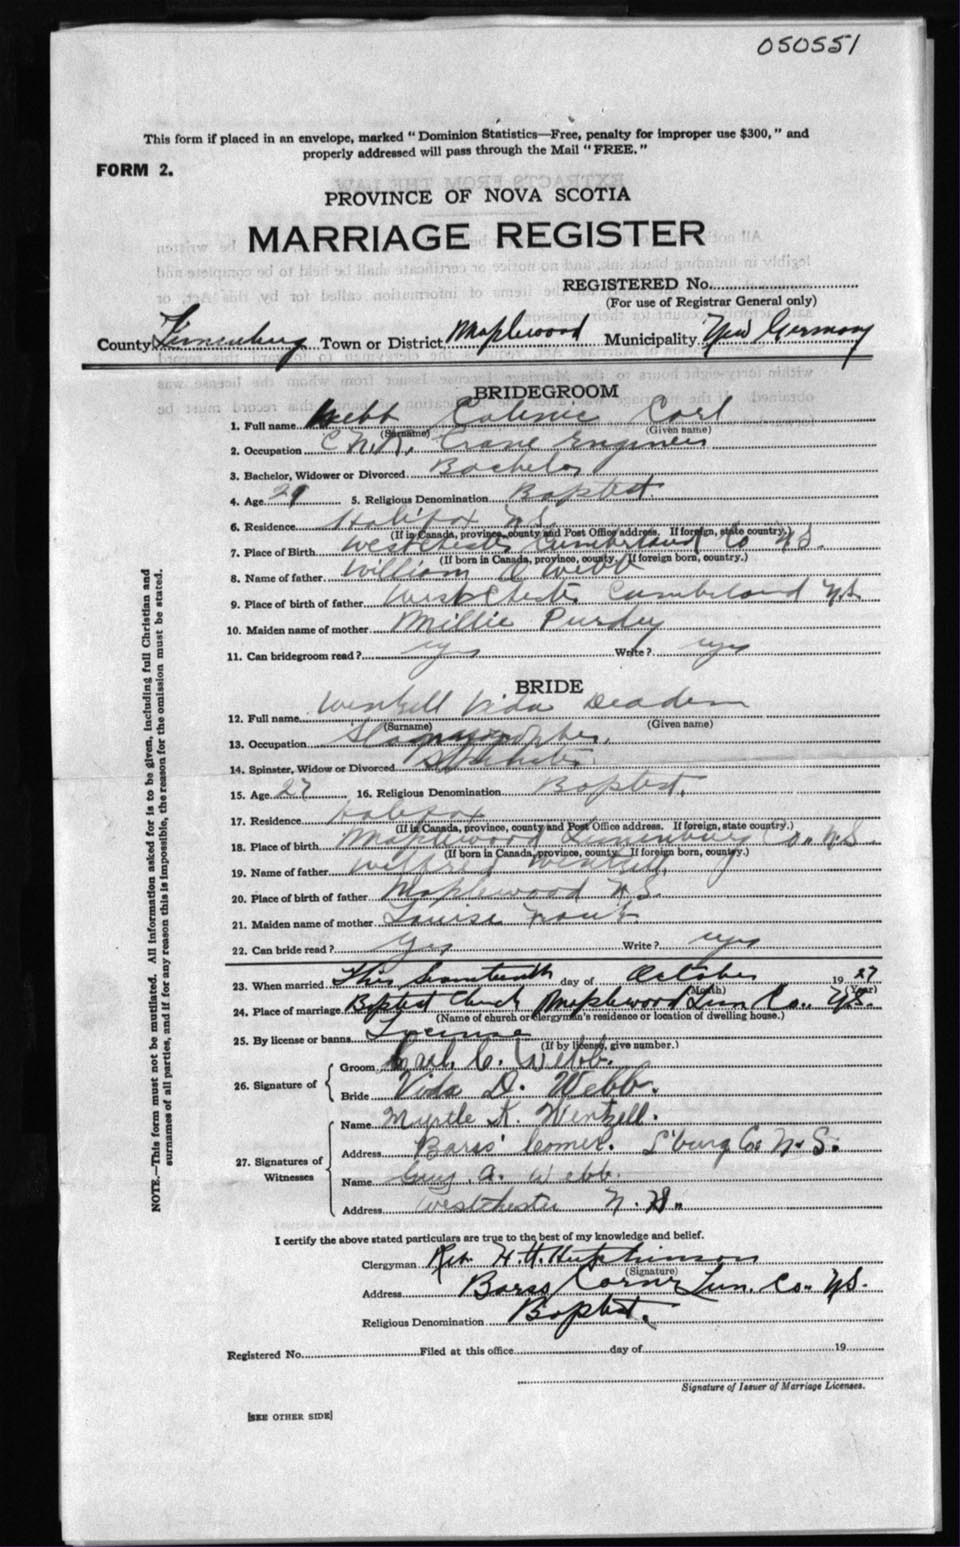 050551
This form if placed in an envelope, marked "Dominion Statistics—Free, penalty for improper use $300," and
properly addressed will pass through the Mail "FREE."
FORM 2.
PROVINCE OF NOVA SCOTIA
MARRIAGE REGISTER
REGISTERED No.
(For use of Registrar General only)
County Lunenburg Town or District Maplewood Municipality New Germany
BRIDEGROOM
1. Full name Webb Carl
(Surname) (Given name)
2. Occupation C.N.R. Crane Engineer
3. Bachelor, Widower or Divorced Bachelor
4. Age 29 5. Religious Denomination Baptist
6. Residence Halifax N.S.
(If in Canada, province, county and Post Office address. If foreign, state country.)
7. Place of Birth Westchester Cumberland Co N.S.
(If born in Canada, province, county. If foreign born, country.)
8. Name of father William A Webb
9. Place of birth of father Westchester Cumberland N.S
10. Maiden name of mother Millie Purdy
11. Can bridegroom read? yes Write? yes
BRIDE
12. Full name Wentzell Vida
(Surname) (Given name)
13. Occupation
14. Spinster, Widow or Divorced Spinster
15. Age 27 16. Religious Denomination Baptist.
17. Residence Halifax
(If in Canada, province, county and Post Office address. If foreign, state country.)
18. Place of birth Maplewood Lunenburg Co. N.S.
(If born in Canada, province, county. If foreign born, country.)
19. Name of father Wilfred Wentzell
20. Place of birth of father Maplewood N.S.
21. Maiden name of mother Louisa
22. Can bride read? Yes Write? yes
23. When married This day of October 1927
(Month) (Year)
24. Place of marriage Baptist Church Maplewood Lun Co. N.S.
(Name of church or clergyman's residence or location of dwelling house.)
25. By license or banns License
(If by license, give number.)
26. Signature of
Groom Carl C. Webb.
Bride Vida D. Webb.
27. Signatures of Witnesses
Name Myrtle K. Wentzell.
Address Barss' Corner. L'burg Co. N.S.
Name Guy A. Webb.
Address Westchester N.S.
I certify the above stated particulars are true to the best of my knowledge and belief.
Clergyman Rev. H. H. Hutchinson
(Signature)
Address Barss Corner Lun. Co. N.S.
Religious Denomination Baptist.
Registered No. Filed at this office day of 19
Signature of Issuer of Marriage Licenses.
[SEE OTHER SIDE]
NOTE.—This form must not be mutilated. All information asked for is to be given, including full Christian and
surnames of all parties, and if for any reason this is impossible, the reason for the omission must be stated.